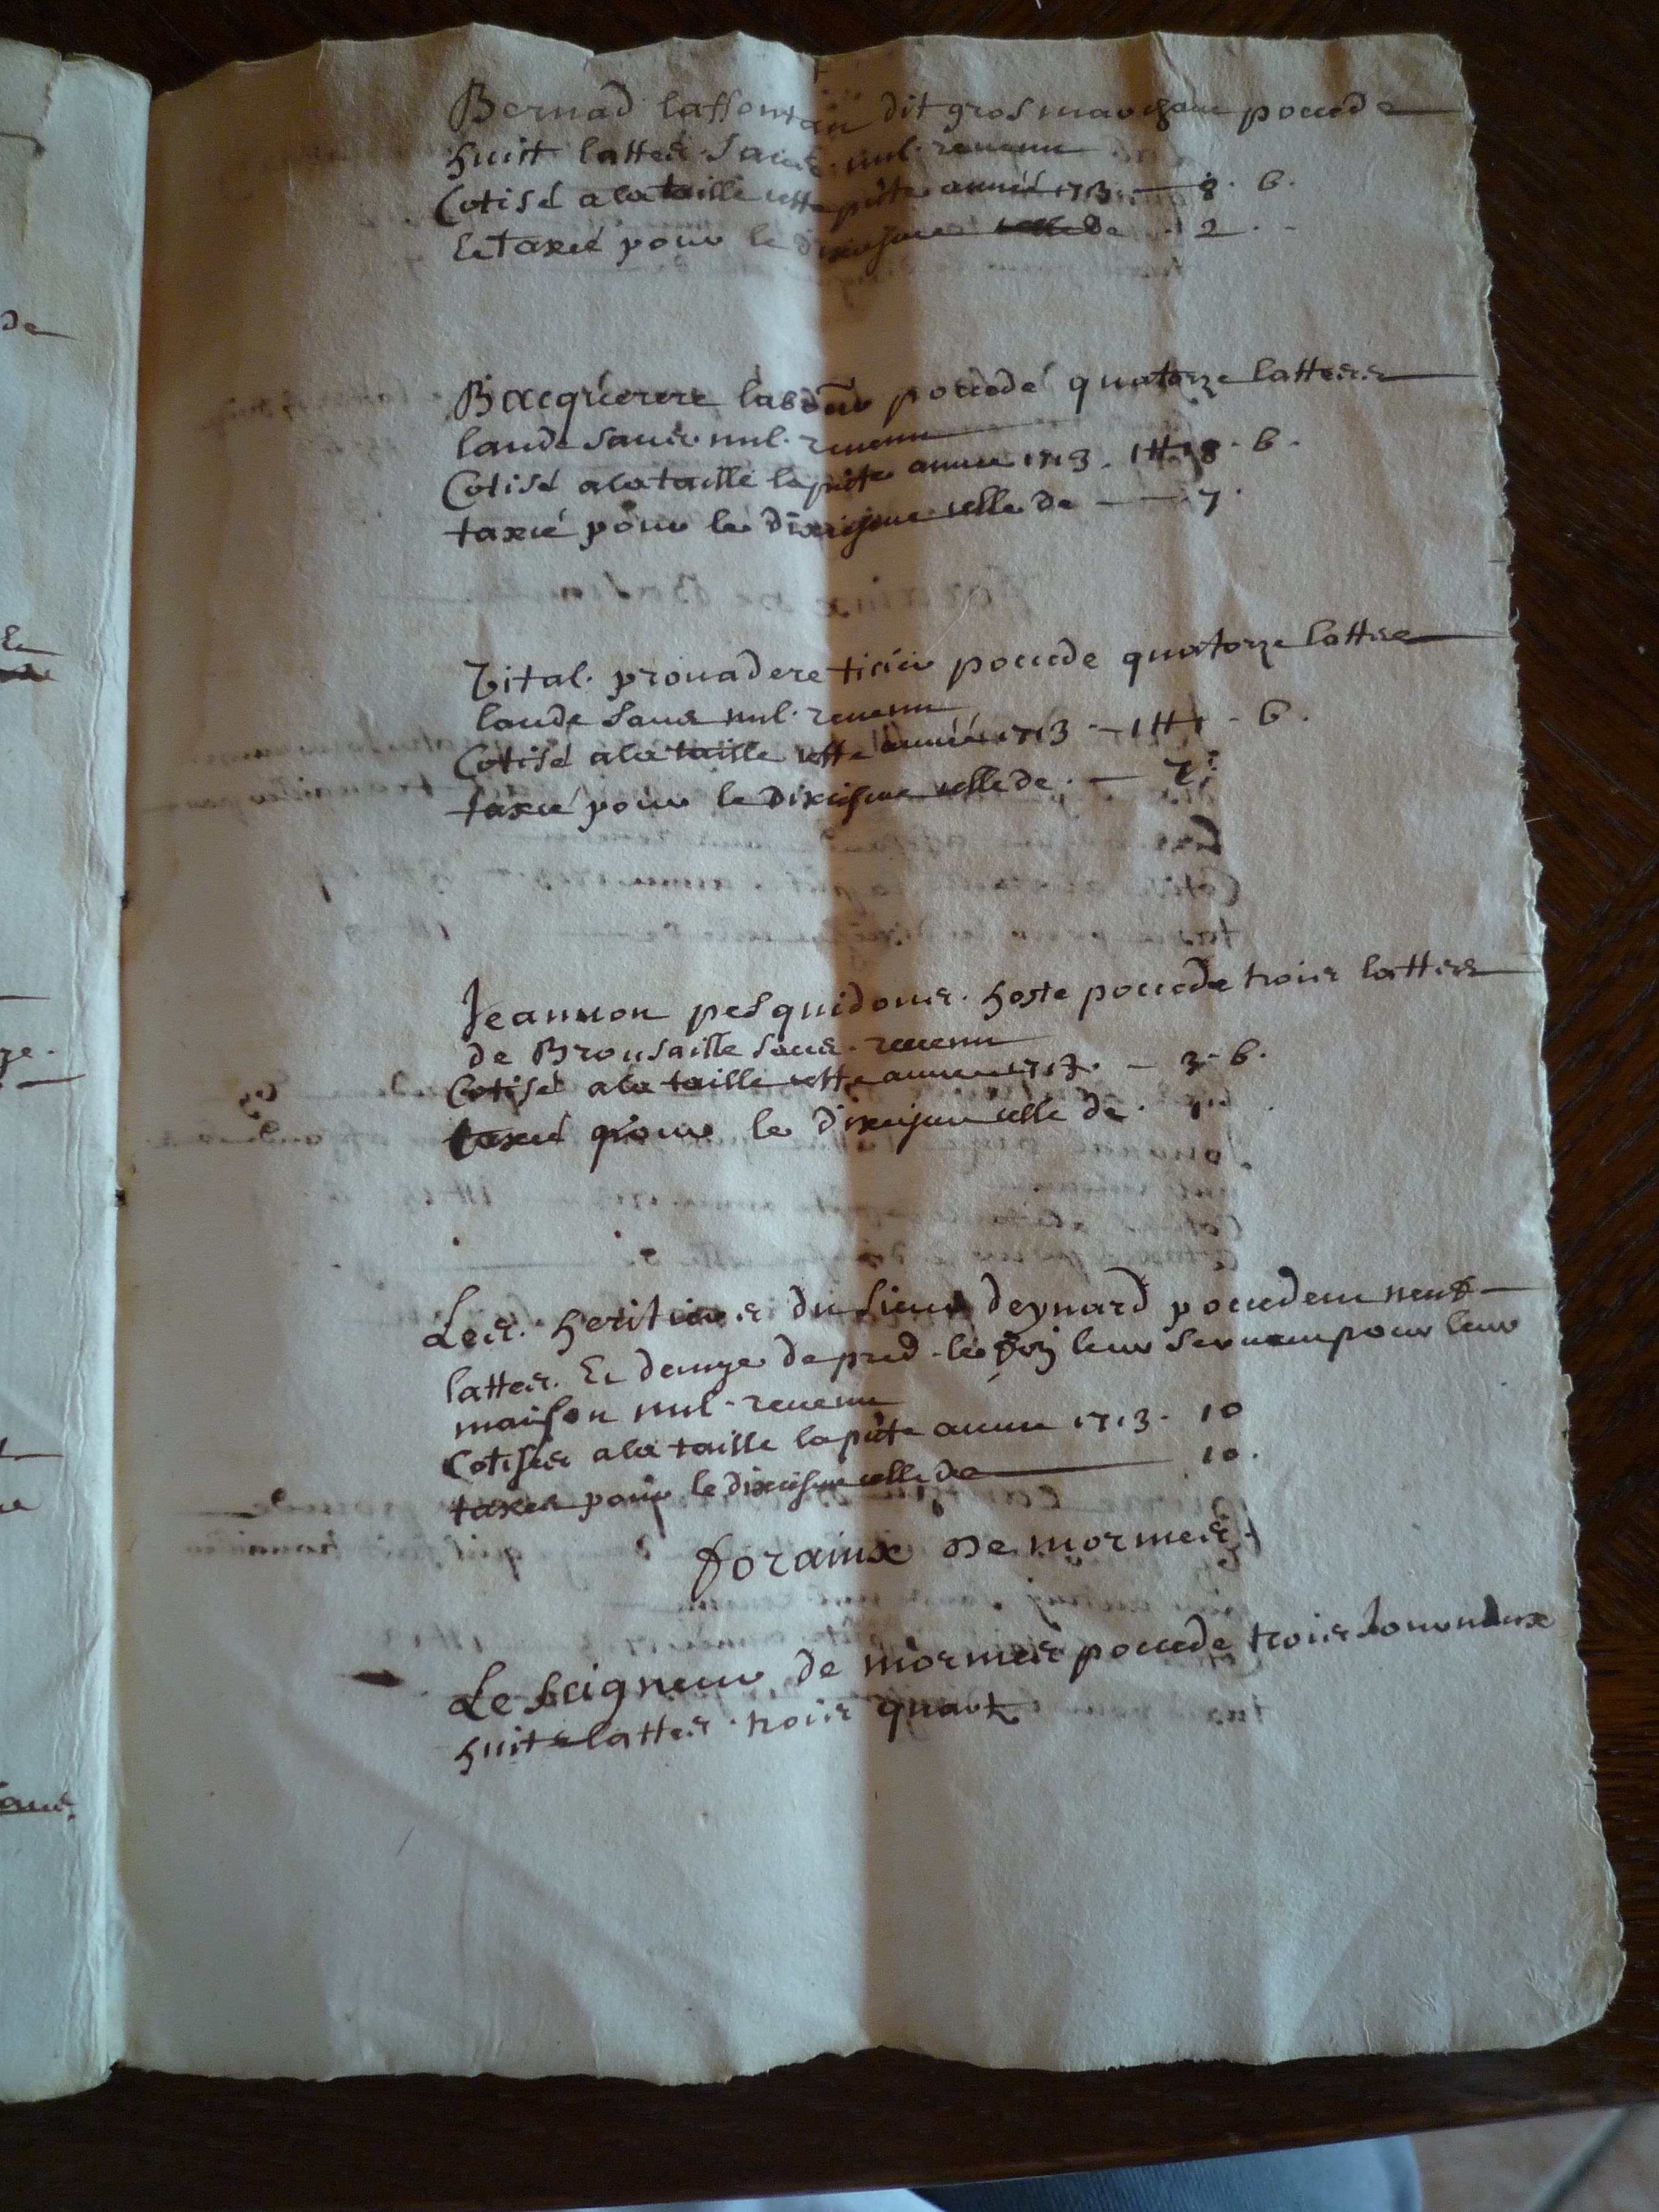 Bernad laffontan dit gros marchant possede
huitt lattes sans nul revenu
Cotisé a la taille cette pnte année 1713 — 8 . 6 .
Et taxé pour le dixiesme de 2 . -
Bacquerere possede quatorze lattes
lande sans nul revenu
Cotisé a la taille la pnte annee 1713 . 1 ₶ 8 . 6 .
taxé pour le dixiesme celle de — 7 .
Vital prouadere possede quatorze lattes
lande sans nul revenu
Cotisé a la taille cette année 1713 — 1 ₶ 1 - 6 .
taxé pour le dixiesme celle de . —
Jeannon pesquidous hoste possede trois lattes
de Brousaille sans revenu
Cotisé a la taille cette annee 1713 . — 3 - 6 .
taxé pour le dixiesme celle de . 1
Les heritiers du sieur deynard possedent neuf
lattes Et demye de pred le foin leur servant pour leur
maison nul revenu
Cotises a la taille la pnte annee 1713 . 10
taxes pour le dixiesme celle de — 10 .
forains de mormes
Le seigneur de mormes possede trois
huit lattes trois quart
de
Et